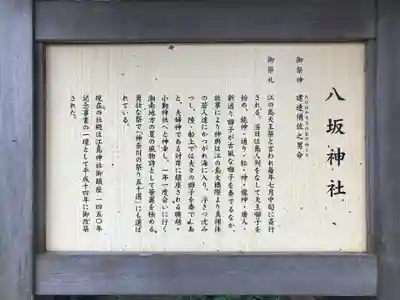 八坂神社
御祭神
建速須佐之男命
たけはやすさのおのみこと
御祭礼
江の島天王祭と言われ毎年七月中旬に斎行
される。当日は島人列をなして天王囃子を
始め、龍神・通り・松・神・龍神・唐人・
新通り囃子が古風な囃子を奏でるなか、
故事により神輿は江の島大橋際より真裸体
の若人達にかつがれ海に入り、浮きつ沈み
つし、陸・船上では夫々の囃子を奏であ
と、夫婦神である対岸に鎮座される腰越・
小動神社へと神幸し、一年一度会いに行く
湘南地方の夏の風物詩として華麗を極める
勇壮な祭で「神奈川の祭り五十選」にも選ば
れている。
現在の社殿は江島神社御鎮座一四五〇年
記念事業の一環として平成十四年に御改築
された。